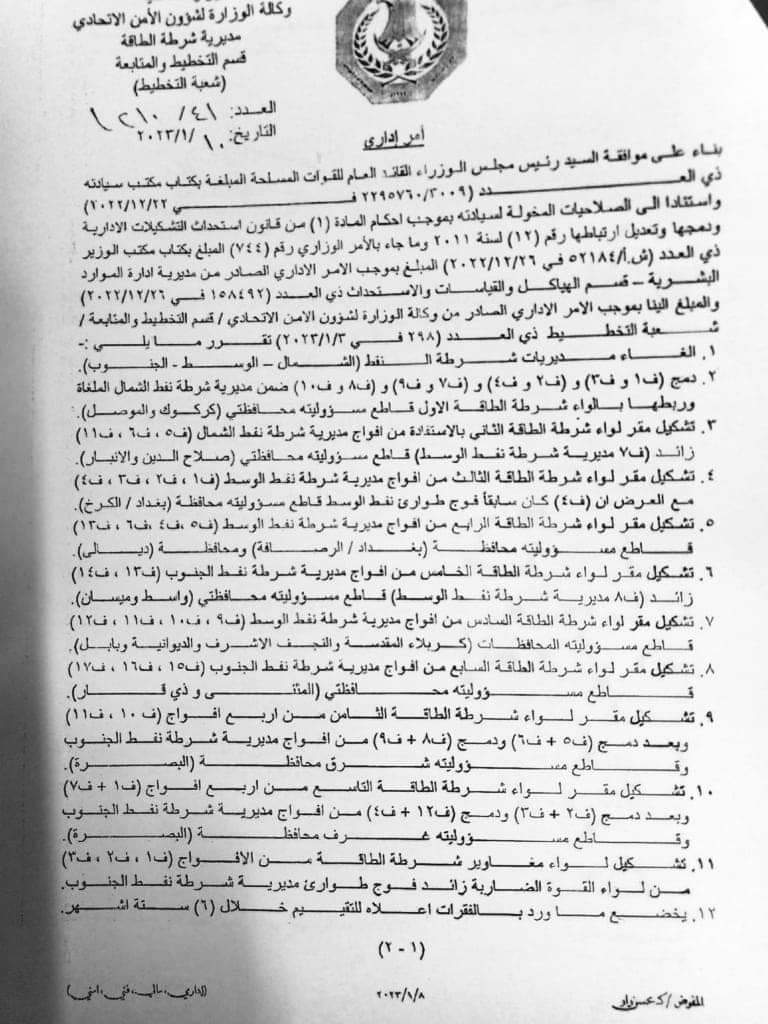 وكالة الوزارة لشؤون الأمن الاتحادي
مديرية شرطة الطاقة
قسم التخطيط والمتابعة
(شعبة التخطيط)
العدد: ٤١/ ١٢١٠
التاريخ: ١٠ /٢٠٢٣/١
أمر إداري
بناء على موافقة السيد رئيس مجلس الوزراء القائد العام للقوات المسلحة المبلغة بكتاب مكتب سيادته
ذي العدد (٢٢٩٥٧٦٠/٣٠٠٩ في ٢٠٢٢/١٢/٢٢)
واستنادا الى الصلاحيات المخولة لسيادته بموجب احكام المادة (١) من قانون استحداث التشكيلات الادارية
ودمجها وتعديل ارتباطها رقم (١٢) لسنة ٢٠١١ وما جاء بالأمر الوزاري رقم (٧٤٤) المبلغ بكتاب مكتب الوزير
ذي العدد (ش.أ/٥٢١٨٤ في ٢٠٢٢/١٢/٢٦) المبلغ بموجب الامر الاداري الصادر من مديرية ادارة الموارد
البشرية – قسم الهياكل والقياسات والاستحداث ذي العدد (١٥٨٤٩٢ في ٢٠٢٢/١٢/٢٦)
والمبلغ الينا بموجب الامر الاداري الصادر من وكالة الوزارة لشؤون الامن الاتحادي / قسم التخطيط والمتابعة /
شعبة التخطيط ذي العدد (٢٩٨ في ٢٠٢٣/١/٣) تقرر ما يلي :-
١. الغاء مديريات شرطة النفط (الشمال – الوسط - الجنوب).
٢. دمج (ف١ و ف٣) و (ف٢ و ف٤) و (ف٧ و ف٩) و (ف٨ و ف١٠) ضمن مديرية شرطة نفط الشمال الملغاة
وربطها بالواء شرطة الطاقة الاول قاطع مسؤوليته محافظتي (كركوك والموصل).
٣. تشكيل مقر لواء شرطة الطاقة الثاني بالاستفادة من افواج مديرية شرطة نفط الشمال (ف٥ ، ف٦ ، ف١١)
زائد (ف٧ مديرية شرطة نفط الوسط) قاطع مسؤوليته محافظتي (صلاح الدين والانبار).
٤. تشكيل مقر لواء شرطة الطاقة الثالث من افواج مديرية شرطة نفط الوسط (ف١ ، ف٢ ، ف٣ ، ف٤)
مع العرض ان (ف٤) كان سابقاً فوج طوارئ نفط الوسط قاطع مسؤوليته محافظة (بغداد / الكرخ).
٥. تشكيل مقر لواء شرطة الطاقة الرابع من افواج مديرية شرطة نفط الوسط (ف٥ ،ف٤ ،ف٦ ، ف١٣)
قاطع مسؤوليته محافظة (بغداد / الرصافة) ومحافظة (ديالى).
٦. تشكيل مقر لواء شرطة الطاقة الخامس من افواج مديرية شرطة نفط الجنوب (ف١٣ ، ف١٤)
زائد (ف٨ مديرية شرطة نفط الوسط) قاطع مسؤوليته محافظتي (واسط وميسان).
٧. تشكيل مقر لواء شرطة الطاقة السادس من افواج مديرية شرطة نفط الوسط (ف٩ ، ف١٠ ، ف١١ ، ف١٢)
قاطع مسؤوليته المحافظات (كربلاء المقدسة والنجف الاشرف والديوانية وبابل).
٨. تشكيل مقر لواء شرطة الطاقة السابع من افواج مديرية شرطة نفط الجنوب (ف١٥ ، ف١٦ ، ف١٧)
قاطع مسؤوليته محافظتي (المثنى و ذي قار).
٩. تشكيل مقر لواء شرطة الطاقة الثامن من اربع افواج (ف ١٠ ، ف١١)
وبعد دمج (ف٥ + ف٦) ودمج (ف٨ + ف٩) من افواج مديرية شرطة نفط الجنوب
وقاطع مسؤوليته شرق محافظة (البصرة).
١٠. تشكيل مقر لواء شرطة الطاقة التاسع من اربع افواج (ف١ + ف٧)
وبعد دمج (ف٢ + ف٣) ودمج (ف١٢ + ف٤) من افواج مديرية شرطة نفط الجنوب
وقاطع مسؤوليته غرف محافظة (البصرة).
١١. تشكيل لواء مغاوير شرطة الطاقة من الافواج (ف١ ، ف٢ ، ف٣)
من لواء القوة الضاربة زائد فوج طوارئ مديرية شرطة نفط الجنوب.
١٢. يخضع ما ورد بالفقرات اعلاه للتقييم خلال (٦) ستة اشهر.
(١ - ٢)
المفوض /
٢٠٢٣/١/٨
((اداري، مالي، فني، امني))